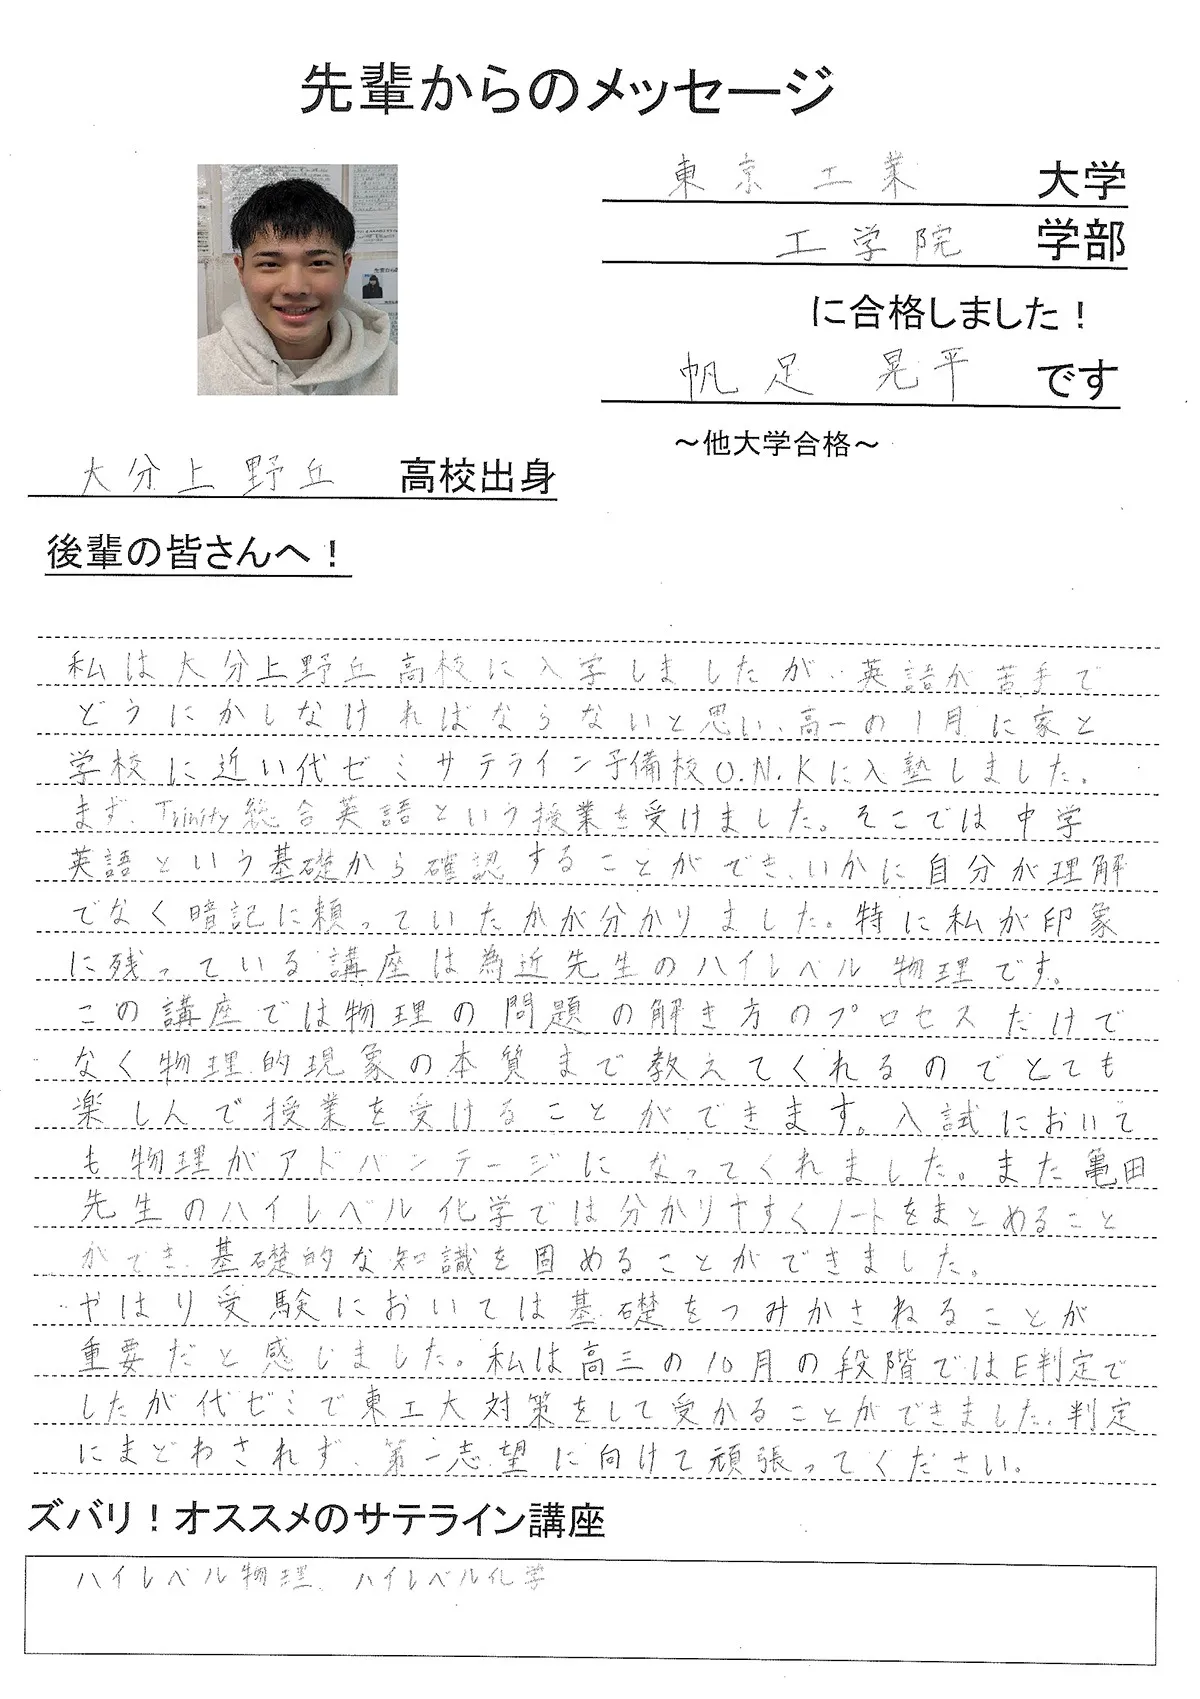 先輩からのメッセージ
東京工業 大学
工学院 学部
に合格しました！
帆足 晃平 です
～他大学合格～
大分上野丘 高校出身
後輩の皆さんへ！
私は大分上野丘高校に入学しましたが、英語が苦手で
どうにかしなければならないと思い、高一の1月に家と
学校に近い代ゼミサテライン予備校O.N.Kに入塾しました。
まず、Trinity総合英語という授業を受けました。そこでは中学
英語という基礎から確認することができ、いかに自分が理解
でなく暗記に頼っていたかが分かりました。特に私が印象
に残っている講座は為近先生のハイレベル物理です。
この講座では物理の問題の解き方のプロセスだけで
なく物理的現象の本質まで教えてくれるのでとても
楽しんで授業を受けることができます。入試において
も物理がアドバンテージになってくれました。また亀田
先生のハイレベル化学では分かりやすくノートをまとめること
ができ、基礎的な知識を固めることができました。
やはり受験においては基礎をつみかさねることが
重要だと感じました。私は高三の10月の段階ではE判定で
したが代ゼミで東工大対策をして受かることができました。判定
にまどわされず、第一志望に向けて頑張ってください。
ズバリ！オススメのサテライン講座
ハイレベル物理、ハイレベル化学